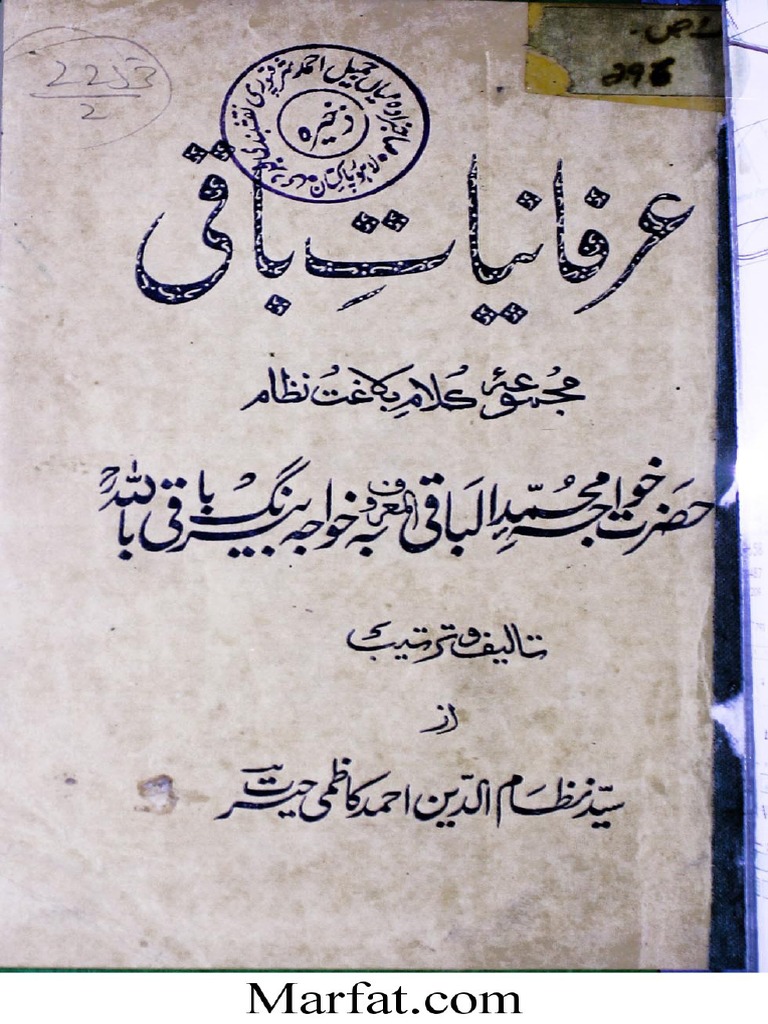 2253
2
ص
298
ذخیرہ
صاحبزادہ میاں جمیل احمد شرقپوری نقشبندی مجددی
لاہور پاکستان
عرفانیاتِ باقی
مجموعۂ کلامِ بلاغت نظام
حضرت خواجہ محمد الباقی المعروف بہ خواجہ بیرنگ باقی باللہ
تالیف و ترتیب
از
سیّد نظام الدّین احمد کاظمی حیرت
Marfat.com